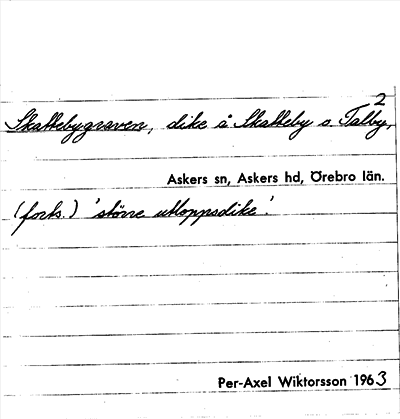 2
Skattebygraven, dike å Skatteby o. Talby,
Askers sn, Askers hd, Örebro län.
(forts.) 'större utloppsdike'.
Per-Axel Wiktorsson 1963